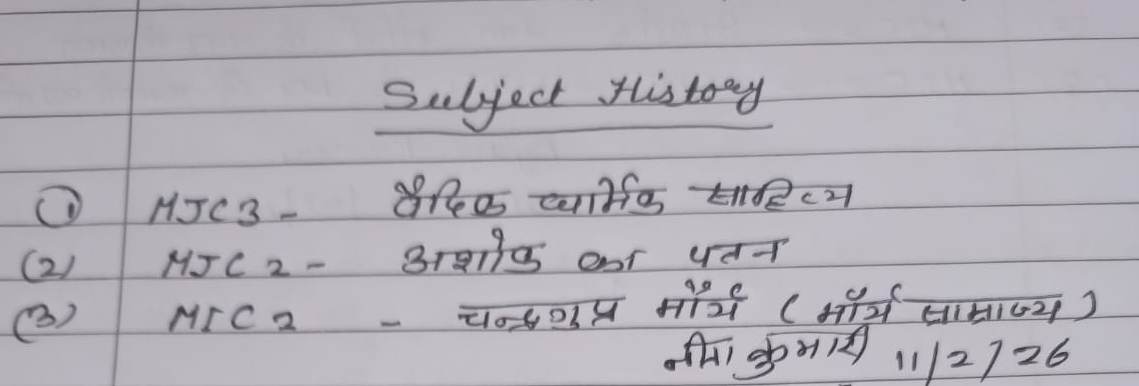 Subject History
① MJC3 - वैदिक धार्मिक साहित्य
(2) MJC 2 - अशोक का पतन
(3) MIC 2 - चन्द्रगुप्त मौर्य ( मौर्य साम्राज्य )
कुमारी 11/2/26